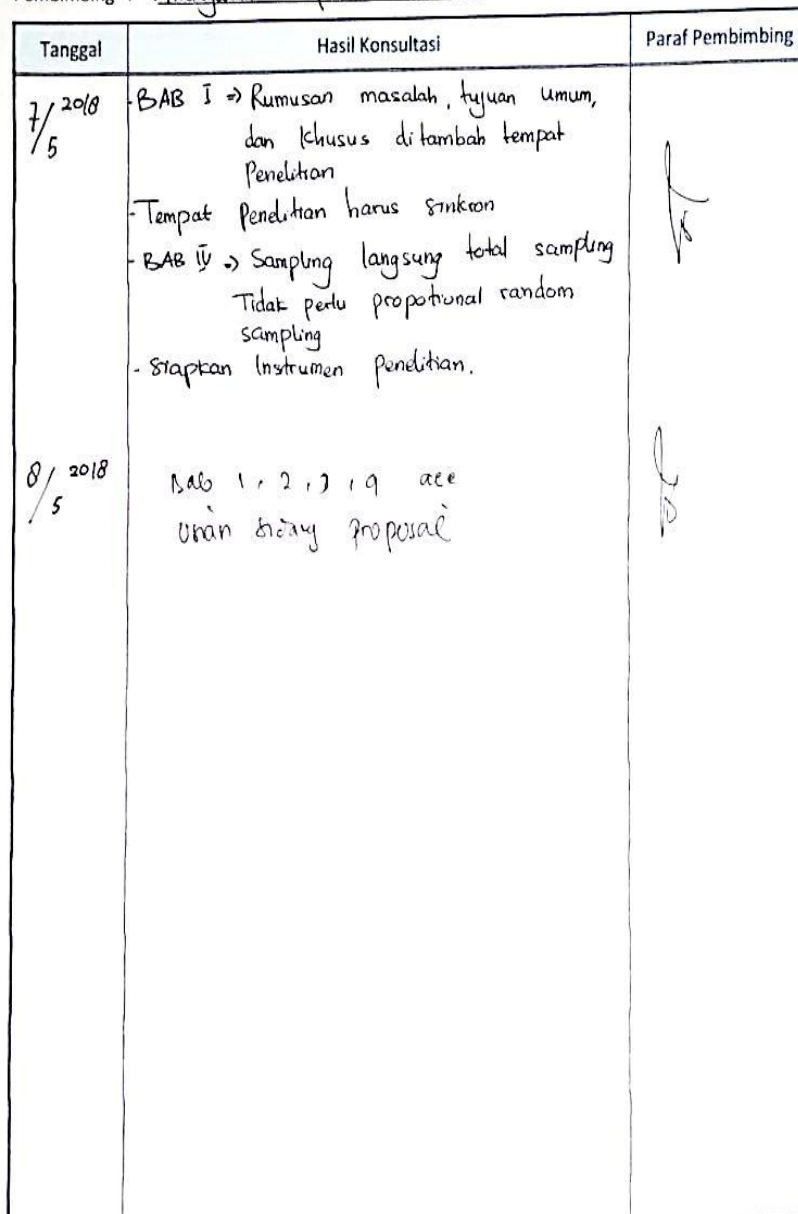 Tanggal
Hasil Konsultasi
Paraf Pembimbing
7/5 2018
- BAB I => Rumusan masalah, tujuan umum,
dan khusus ditambah tempat
Penelitian
- Tempat Penelitian harus sinkron
- BAB IV => Sampling langsung total sampling
Tidak perlu propotional random
sampling
- Siapkan Instrumen Penelitian.
8/5 2018
Bab 1, 2, 3, 4 acc
sidang proposal